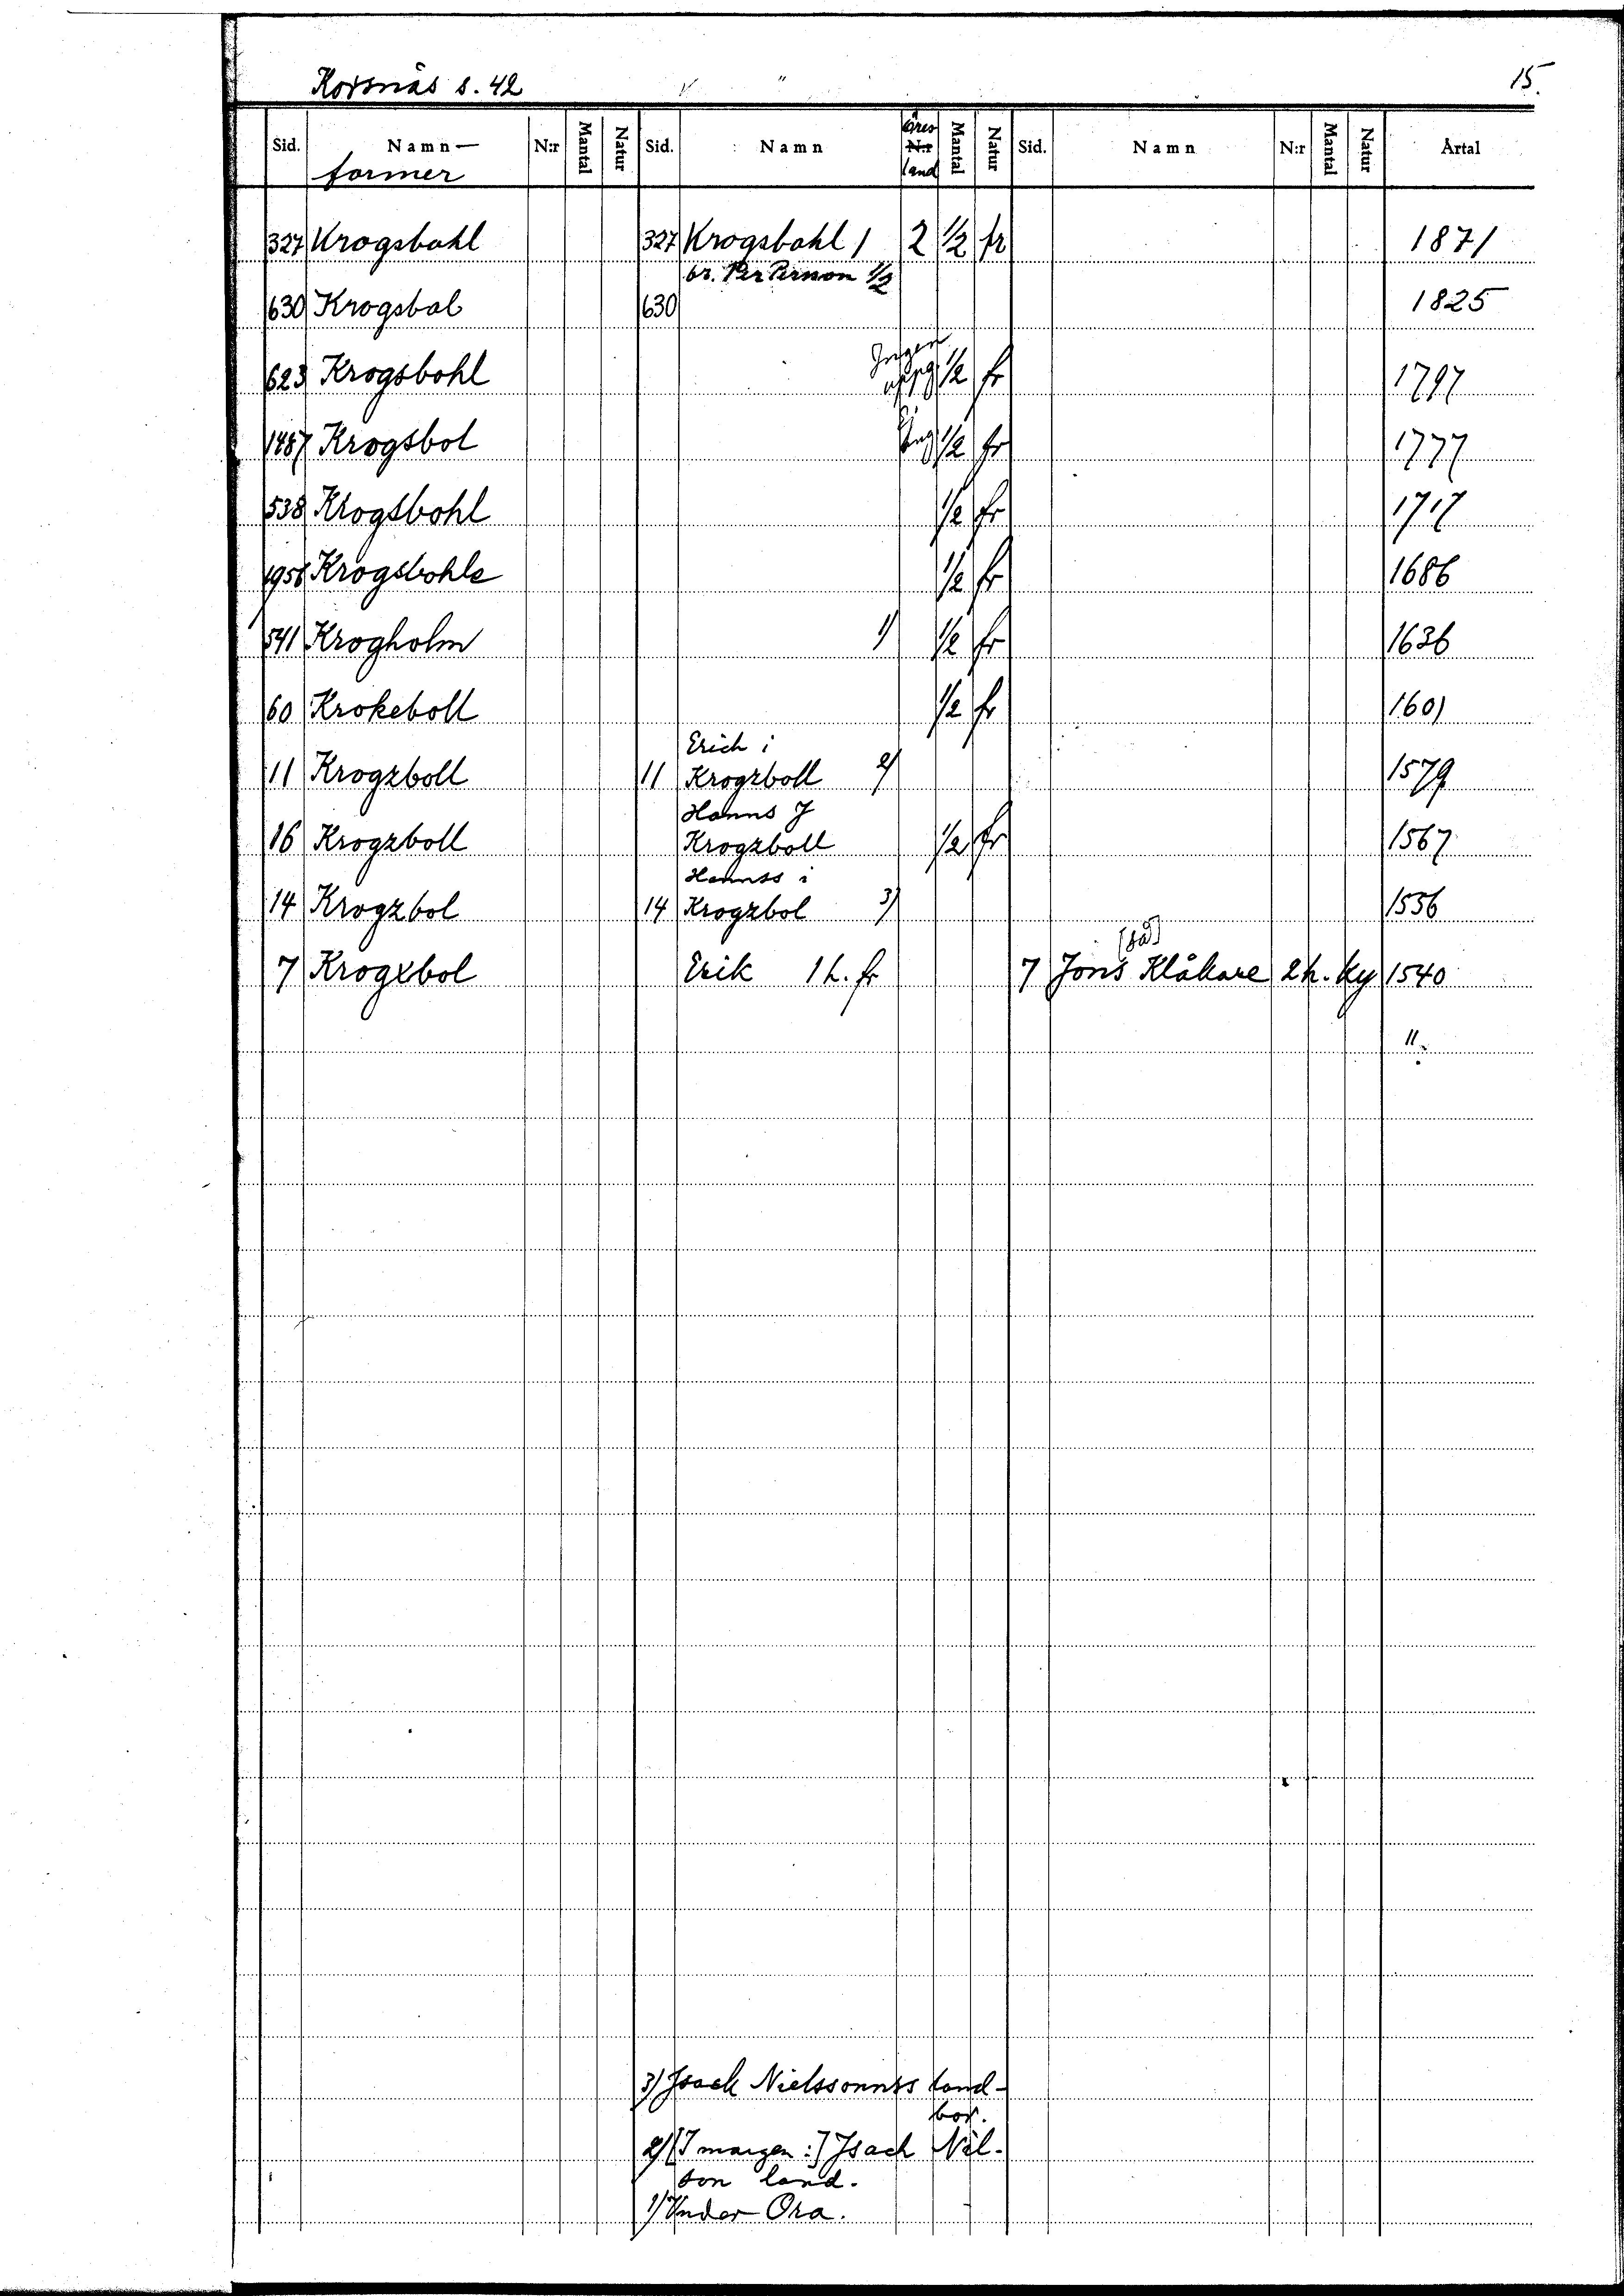 Korsnäs s. 42 15.
Sid. Namn— N:r Mantal Natur Sid. Namn öres N:r land Mantal Natur Sid. Namn N:r Mantal Natur Årtal
former
327 Krogsbohl 327 Krogsbohl 1 2 1/2 fr 1871
br. Per Person 1/2
630 Krogsbol 630 1825
Ingen
623 Krogsbohl uppg 1/2 fr 1797
1487 Krogsbol 1/2 fr 1777
538 Krogsbohl 1/2 fr 1717
1956 Krogsbohls 1/2 fr 1686
541 Krogholm 1) 1/2 fr 1636
60 Krokeboll 1/2 fr 1601
Erich i
11 Krogzboll 11 Krogzboll 2) 1579
Hanns J
16 Krogzboll Krogzboll 1/2 fr 1567
Hannss i
14 Krogzbol 14 Krogzbol 3) 1556
[så]
7 Krogxbol Erik 1 h. fr 7 Jons Klåkare 2 h. ky 1540
"
3) Jsack Nielssonnss land-
bor.
2) [I margen:] Jsach Nil-
son land.
1) Vnder Ora.